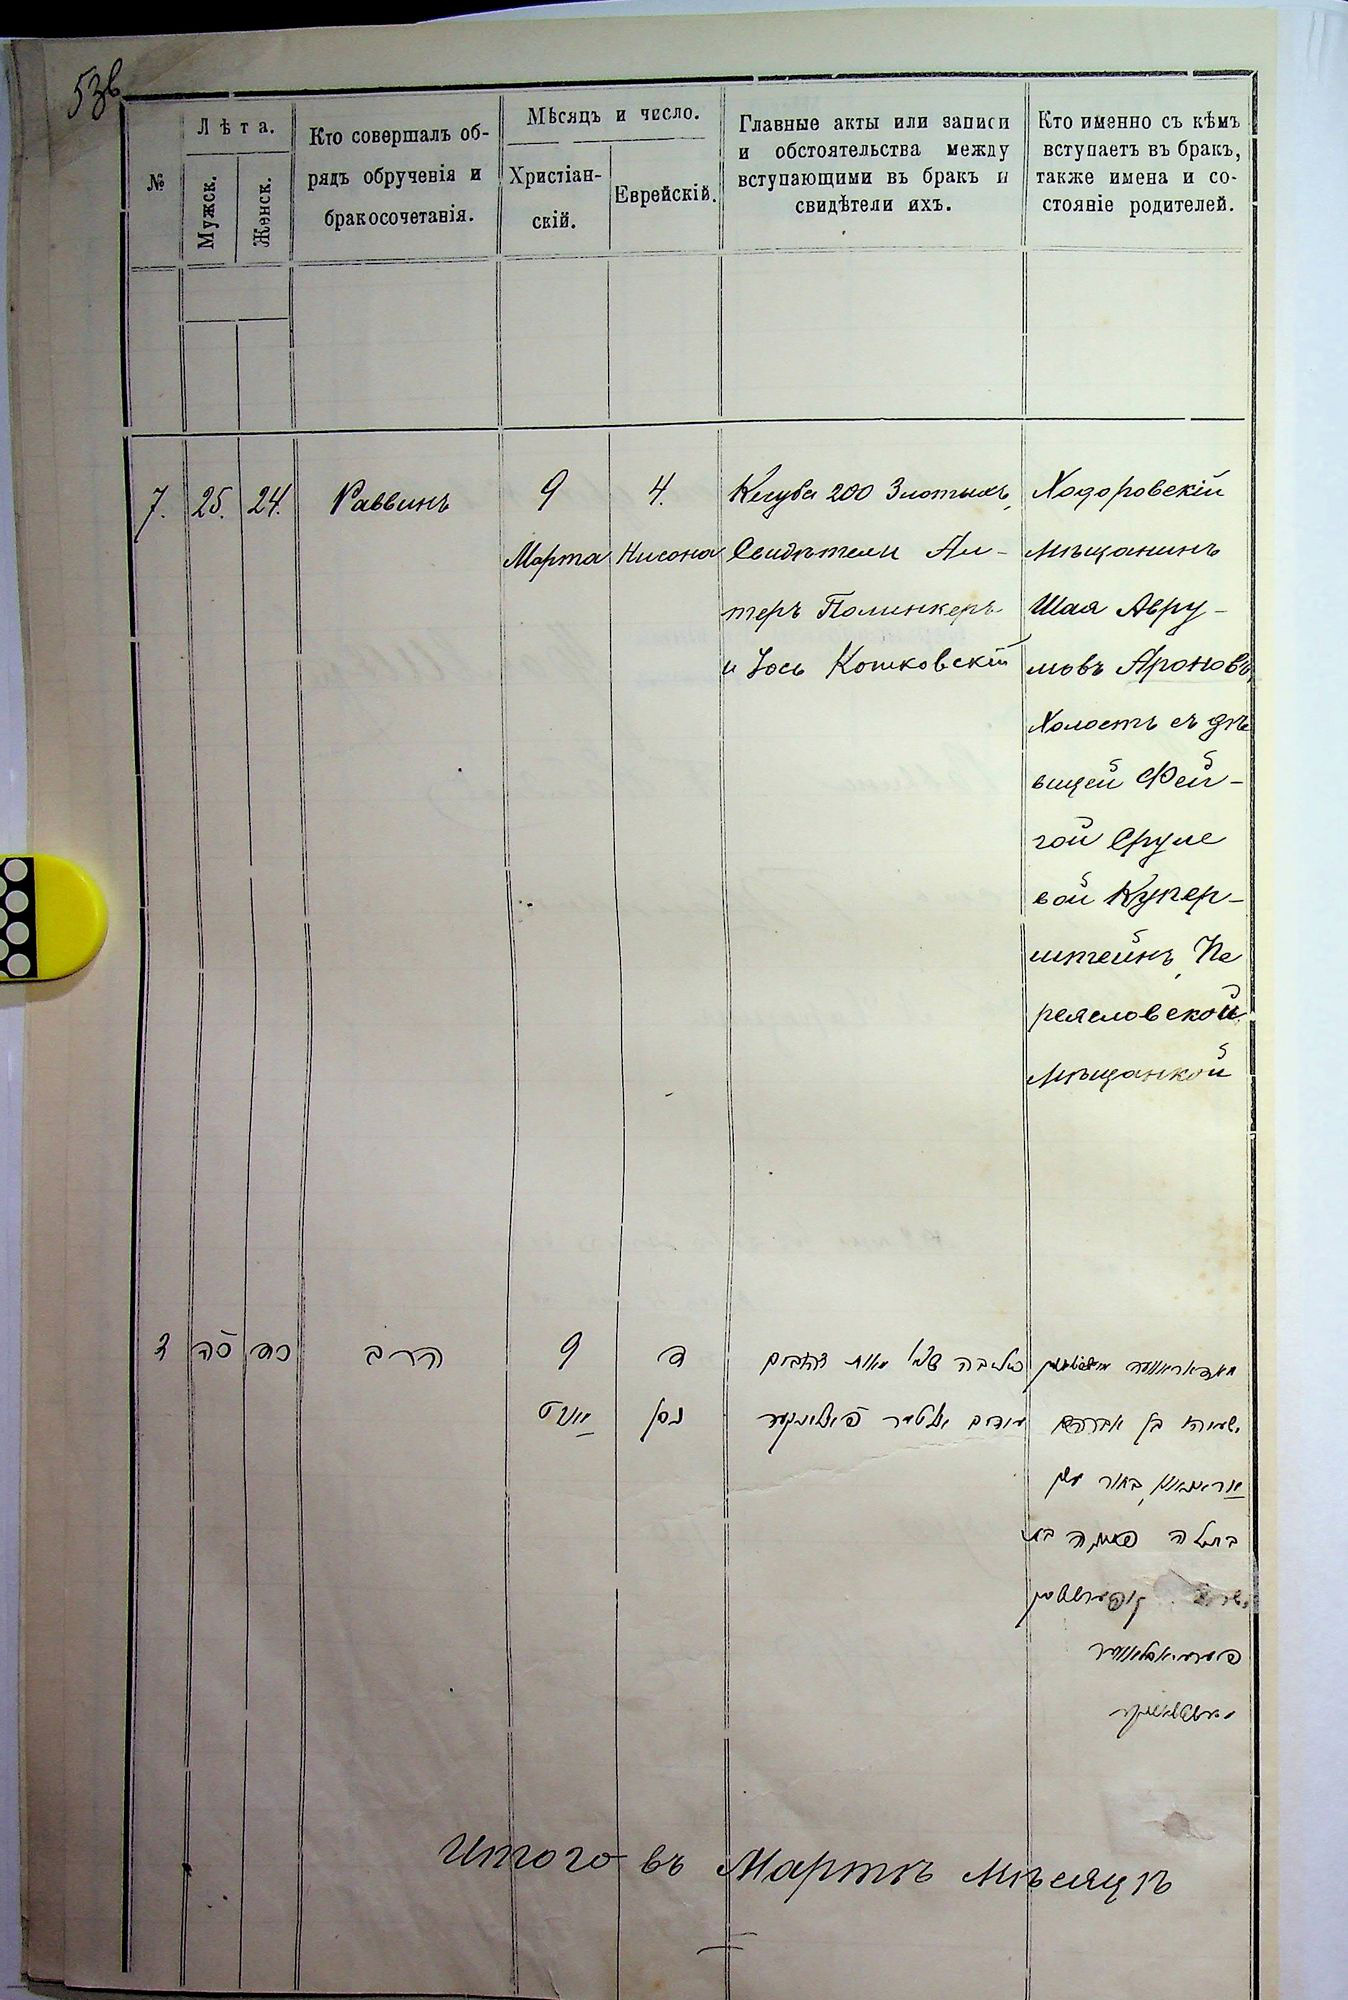 53в
№
Лѣта.
Мужск.
Женск.
Кто совершалъ об-
рядъ обрученія и
бракосочетанія.
Мѣсяцъ и число.
Христіан-
скій.
Еврейскій.
Главные акты или записи
и обстоятельства между
вступающими въ бракъ и
свидѣтели ихъ.
Кто именно съ кѣмъ
вступаетъ въ бракъ,
также имена и со-
стояніе родителей.
7.
25.
24.
Раввинъ
9
Марта
4.
Нисона
Кесуба 200 Злотыхъ,
Свидѣтели Ал-
теръ Полинкеръ
и Іось Кошковскій
Ходоровскій
Мѣщанинъ
Шая Авру-
мовъ Ароновъ,
Холостъ съ дѣ
вицей Фей-
гой Сруле
вой Купер-
штейнъ, Пе
реясловской
Мѣщанкой
הרב
9
מארט
ד
ניסן
כתובה שני מאות זהובים
עדים אלטער פאלינקער
ישעיה בן אברהם
בחור עם
בתולה פייגה בת
Итого въ Мартѣ Мѣсяцѣ